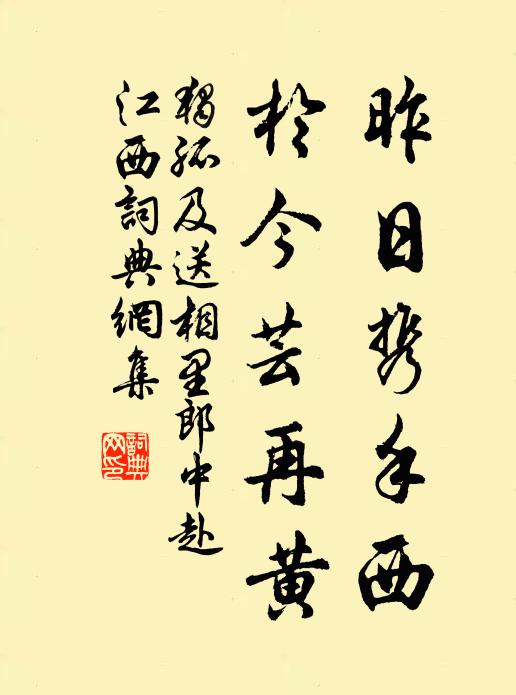 昨日携手西
於今芸再黄
独孤及送相里郎中赴
江西詞典網集
詞典
网印